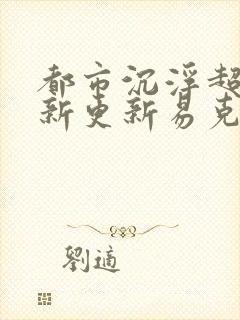 都市沉浮超
新更新易克
劉適